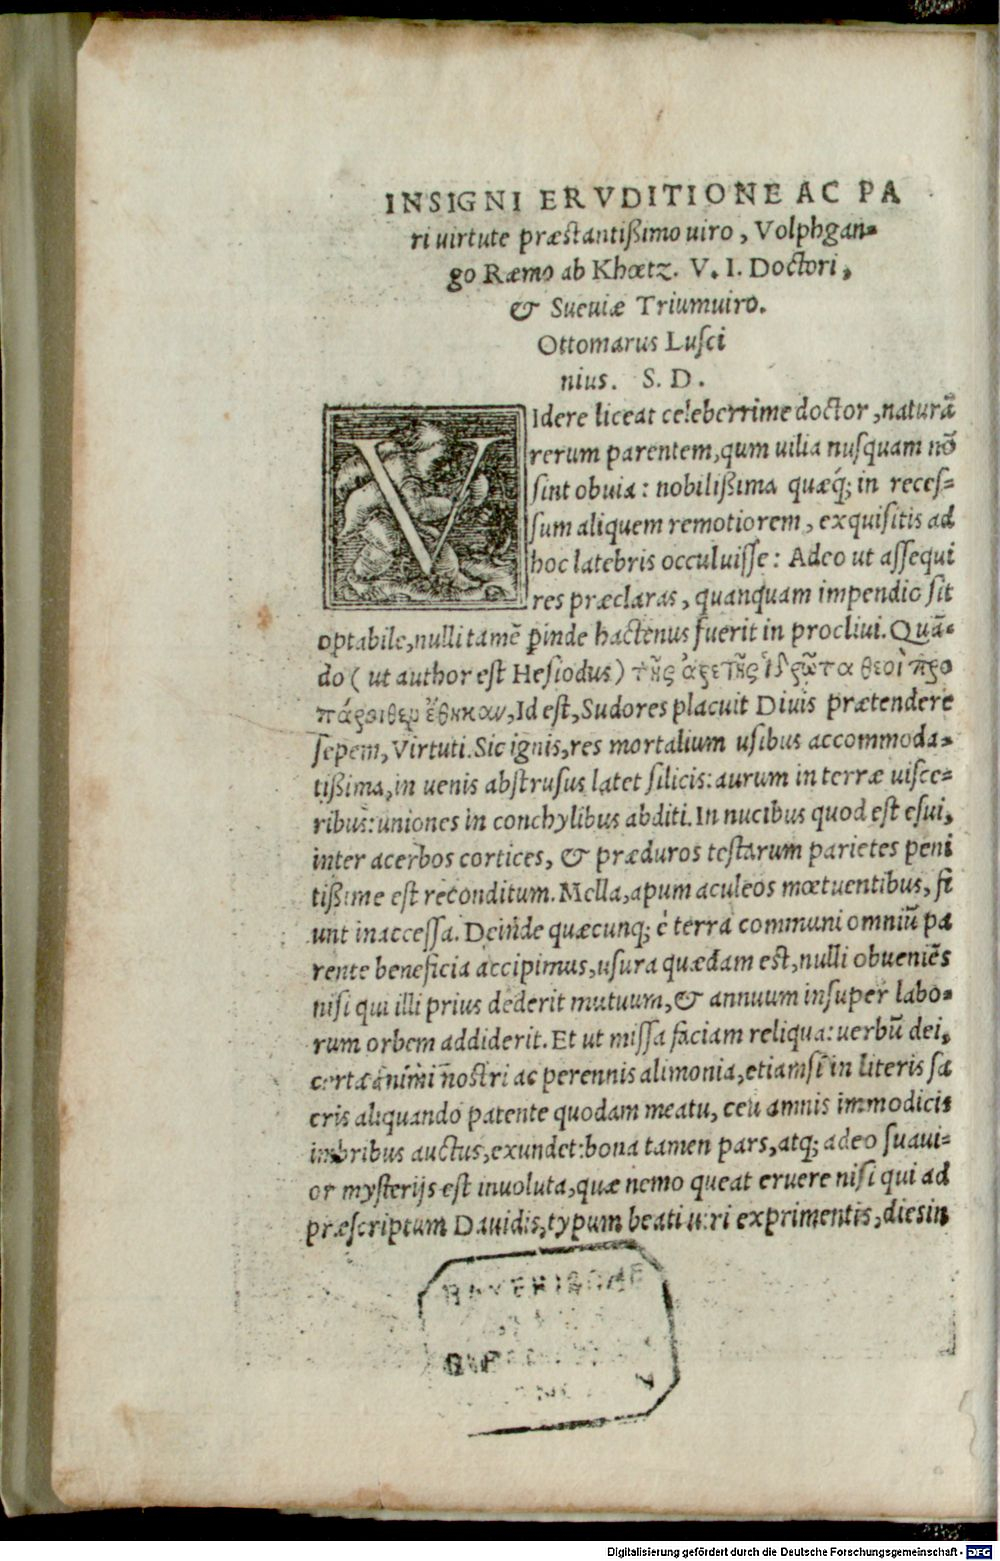 INSIGNI ERVDITIONE AC PA
ri uirtute præstantißimo uiro, Volphgan-
go Ræmo ab Khœtz. V. I. Doctori,
& Sueuiæ Triumuiro.
Ottomarus Lusci
nius. S. D.
VIdere liceat celeberrime doctor, naturã
rerum parentem, qum uilia nusquam nõ
sint obuia: nobilißima quæq́; in reces-
sum aliquem remotiorem, exquisitis ad
hoc latebris occuluisse: Adeo ut assequi
res præclaras, quanquam impendio sit
optabile, nulli tamẽ ꝑinde hactenus fuerit in procliui. Quã-
do (ut author est Hesiodus) τῆς ἀρετῆς ἱδρῶτα θεοὶ προ
πάροιθεμ ἔθηκαν, Id est, Sudores placuit Diuis prætendere
sepem, Virtuti. Sic ignis, res mortalium usibus accommoda-
tißima, in uenis abstrusus latet silicis: aurum in terræ uisce-
ribus: uniones in conchylibus abditi. In nucibus quod est esui,
inter acerbos cortices, & præduros testarum parietes peni
tißime est reconditum. Mella, apum aculeos mœtuentibus, fi
unt inaccessa. Deinde quæcunq; è terra communi omniũ pa
rente beneficia accipimus, usura quædam est, nulli obueniẽs
nisi qui illi prius dederit mutuum, & annuum insuper labo-
rum orbem addiderit. Et ut missa faciam reliqua: uerbũ dei,
certæ animi nostri ac perennis alimonia, etiamsi in literis sa
cris aliquando patente quodam meatu, ceu amnis immodicis
imbribus auctus, exundet: bona tamen pars, atq; adeo suaui-
or mysterijs est inuoluta, quæ nemo queat eruere nisi qui ad
præscriptum Dauidis, typum beati uiri exprimentis, diesin
Digitalisierung gefördert durch die Deutsche Forschungsgemeinschaft - DFG